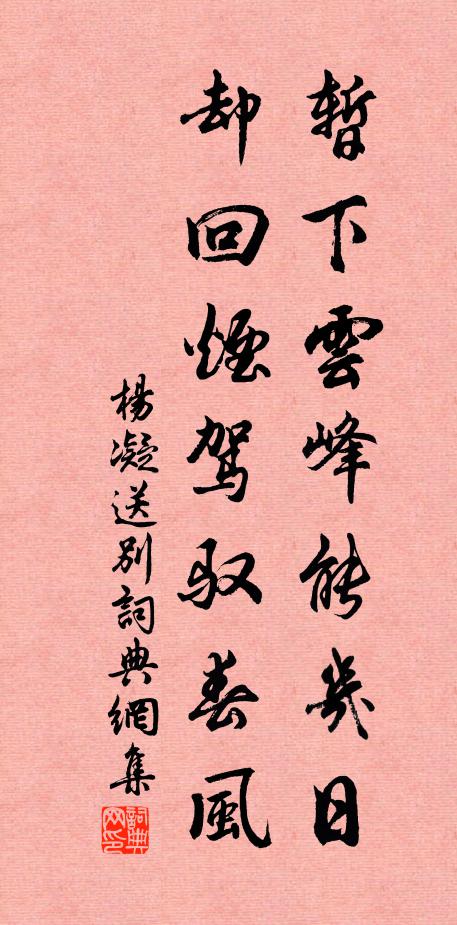 暫下雲峰能幾日
却回煙駕馭春風
楊凝送別詞典網集
詞典网印